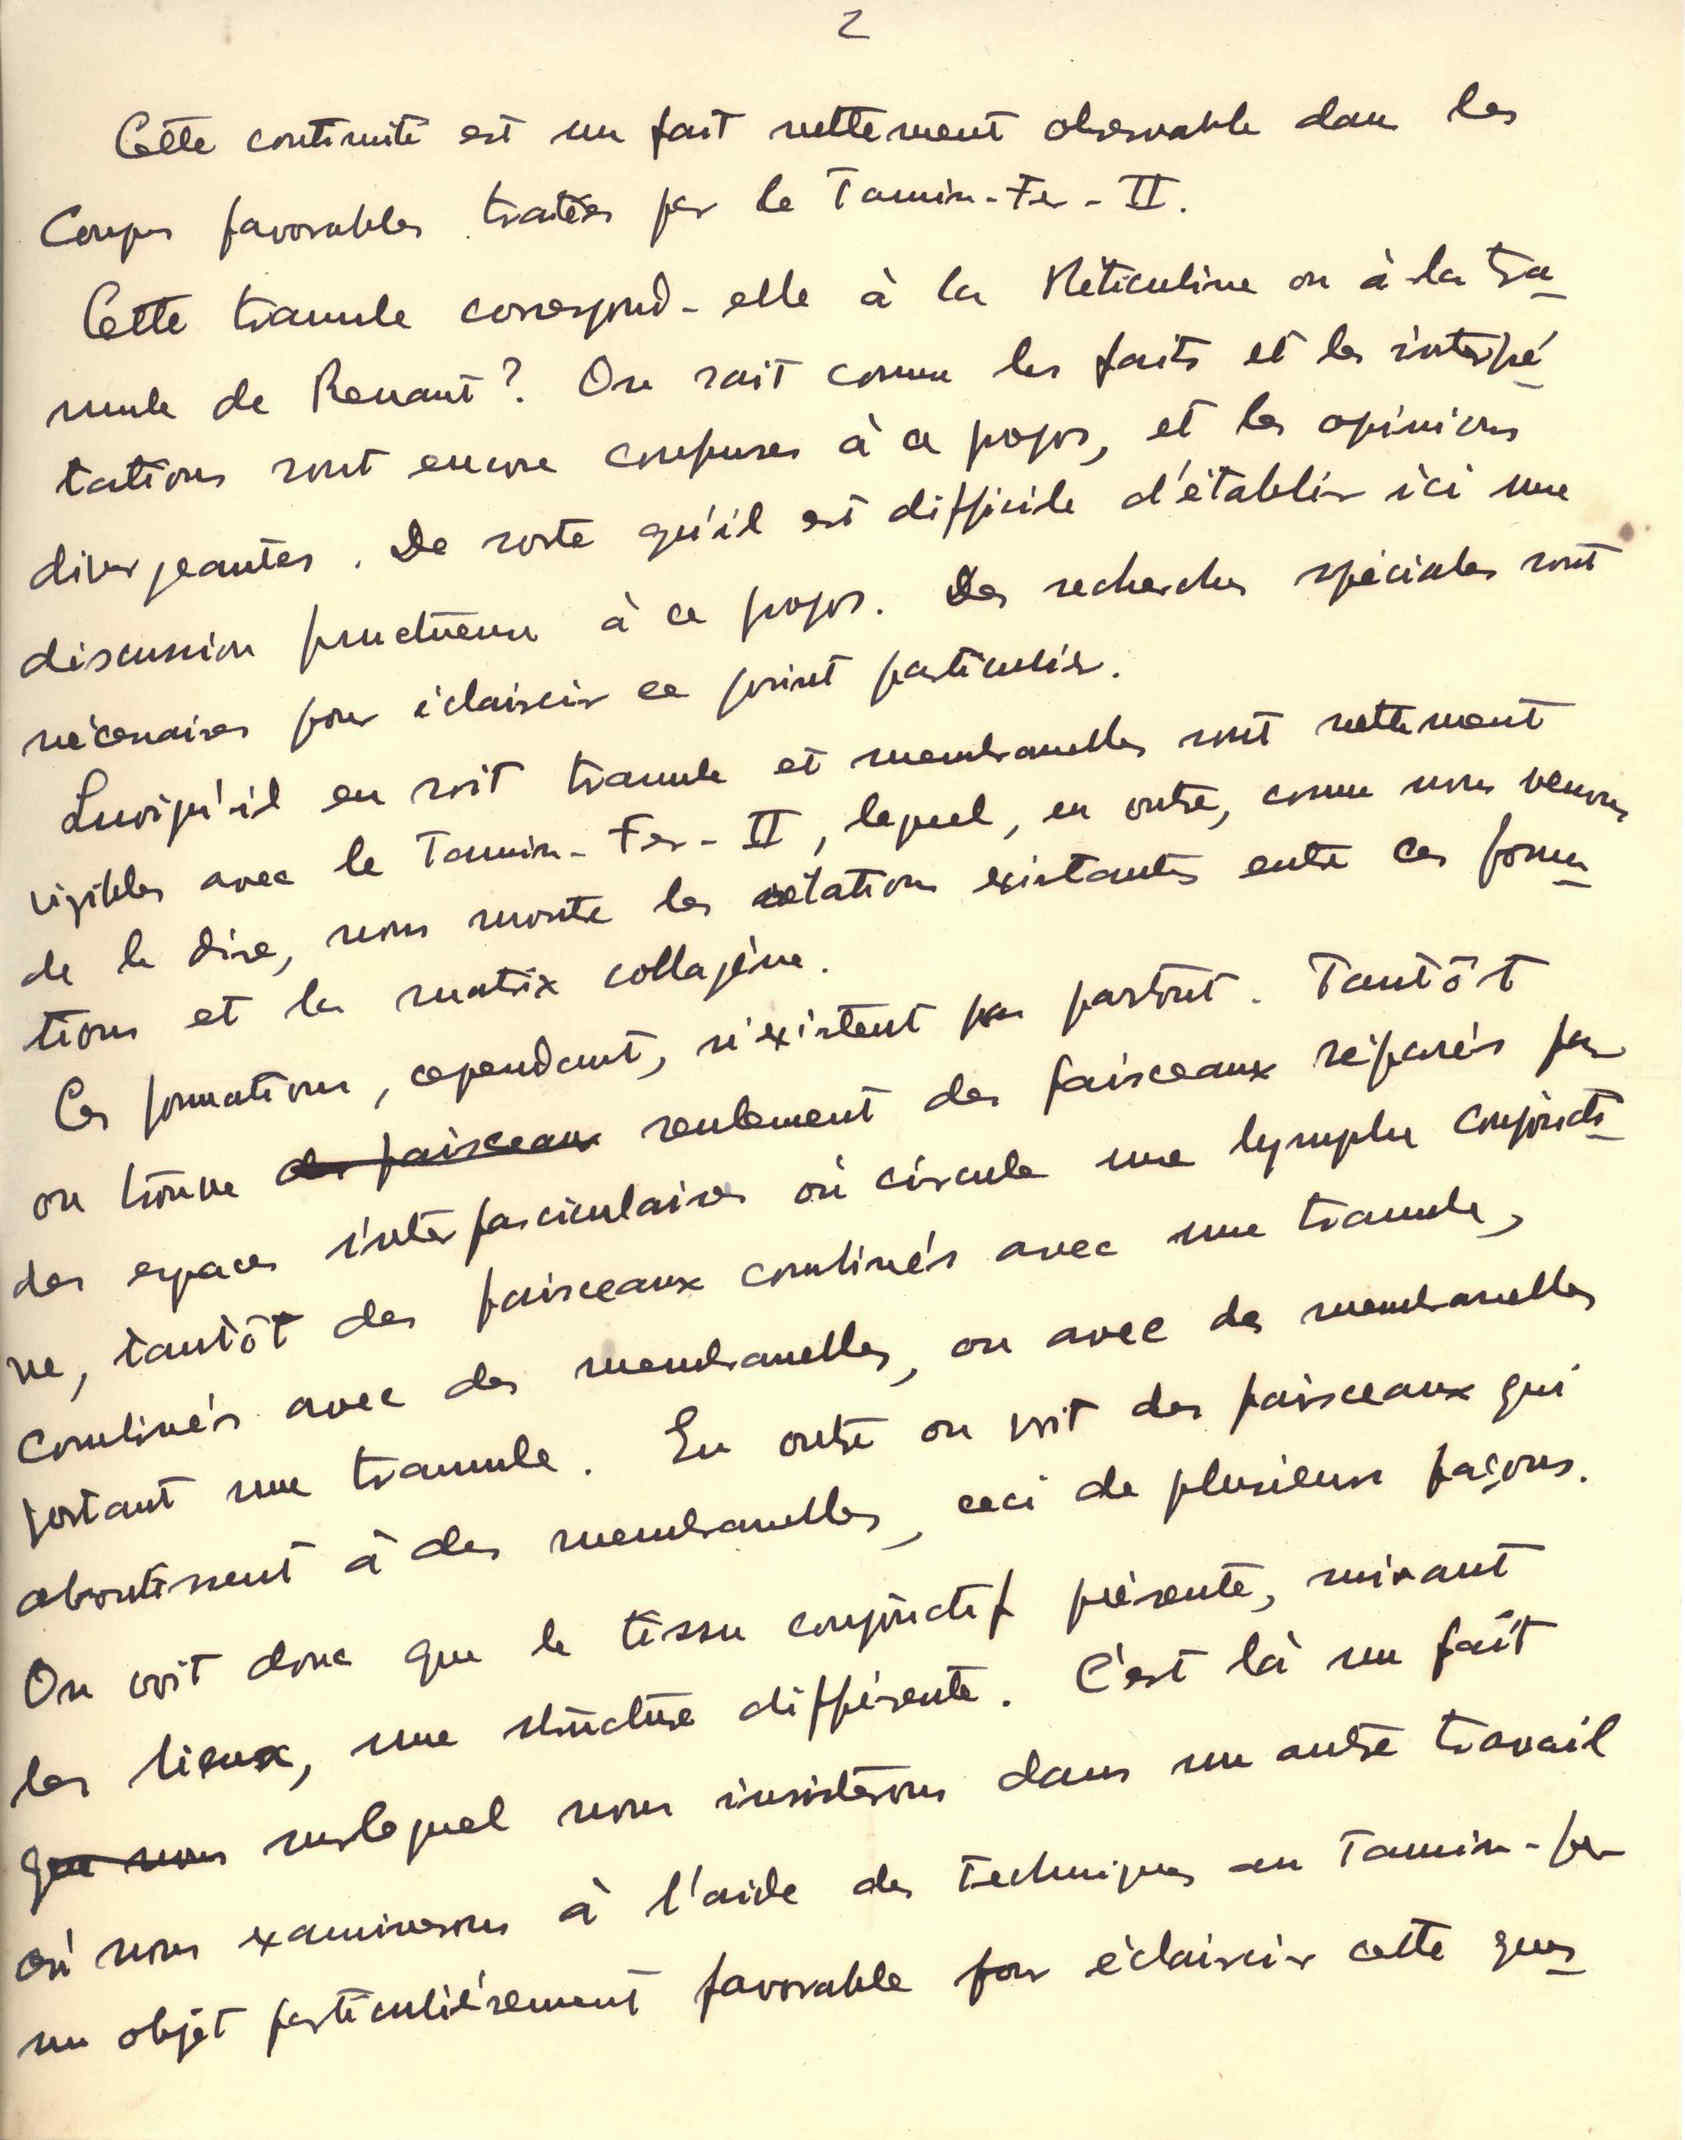 2
Cette continuité est un fait nettement observable dans les
Coupes favorables traitées par le Tannin-Fer-II.
Cette tramule correspond-elle à la Réticuline ou à la tra-
mule de Renaut? On sait comme les faits et les interpré-
tations sont encore confuses à ce propos, et les opinions
divergeantes. De sorte qu'il est difficile d'établir ici une
discussion fructueuse à ce propos. Des recherches spéciales sont
nécessaires pour éclaircir ce point particulier.
Quoiqu'il en soit tramule et membranelles sont nettement
visibles avec le Tannin-Fer-II, lequel, en outre, comme nous venons
de le dire, nous montre les relations existantes entre ces forma-
tions et la matrix collagène.
Ces formations, cependant, n'existent pas partout. Tantôt
on trouve des faisceaux seulement des faisceaux séparés par
des espaces interfasciculaires où circule une lymphe conjoncti-
ve, tantôt des faisceaux combinés avec une tramule,
combinés avec des membranelles, ou avec des membranelles
portant une tramule. En outre on voit des faisceaux qui
aboutissent à des membranelles, ceci de plusieurs façons.
On voit donc que le tissu conjonctif présente, suivant
les lieux, une structure différente. C'est là un fait
que nous surlequel nous insisterons dans un autre travail
où nous examinerons à l'aide des techniques au Tannin-fer
un objet particulièrement favorable pour éclaircir cette ques-